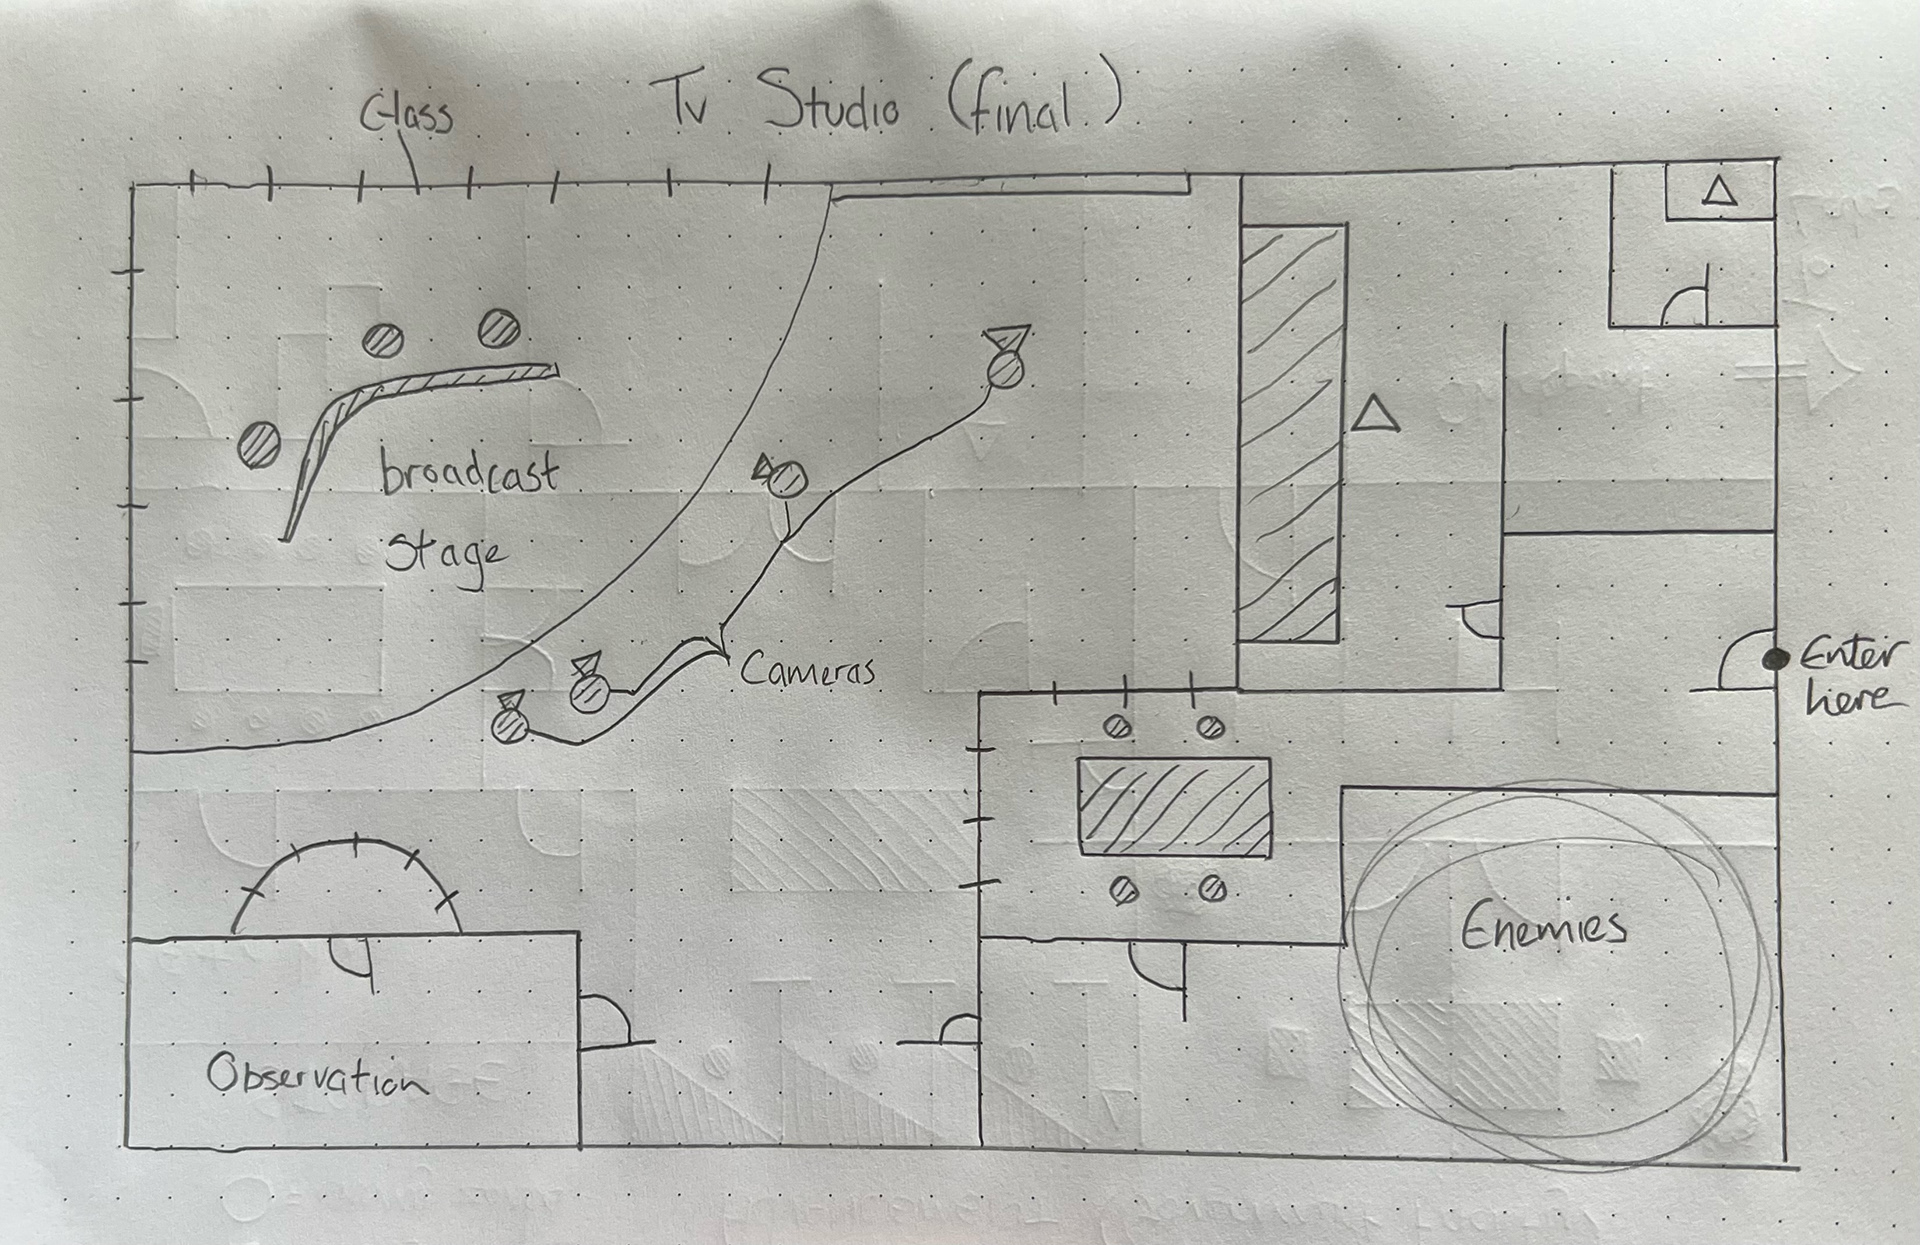 Tv Studio (final)
Glass
broadcast
stage
Cameras
Enter
here
Enemies
Observation